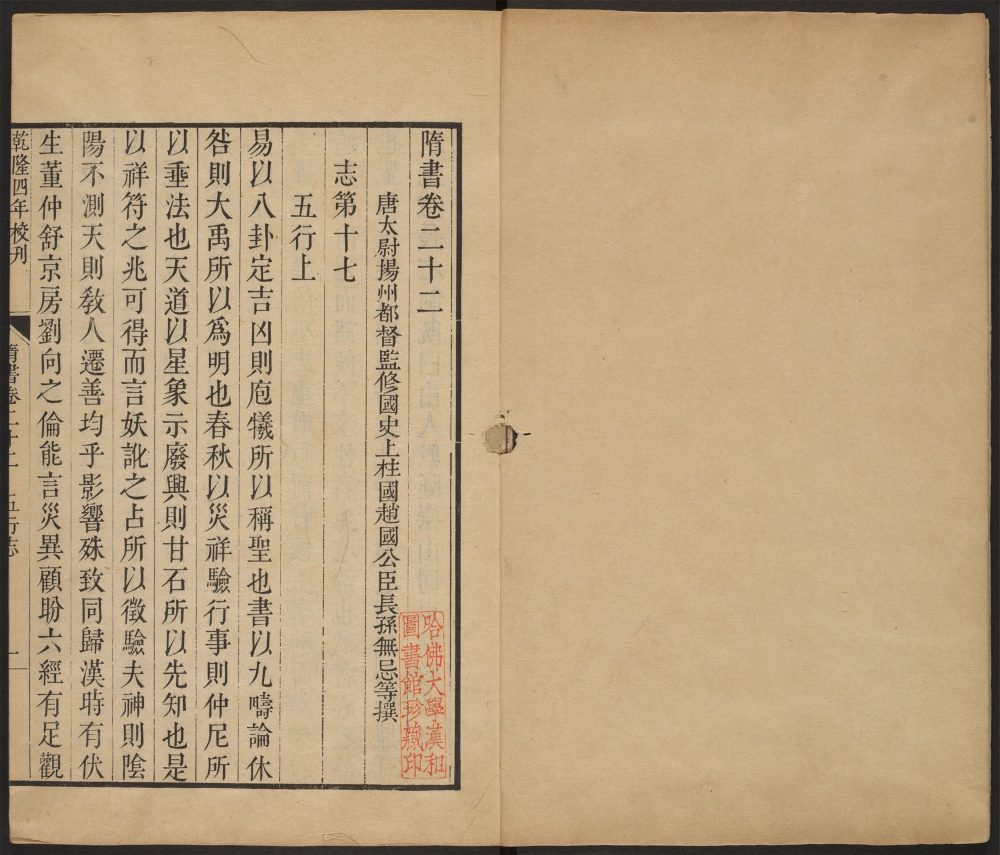 隋書卷二十二
唐太尉揚州都督監修國史上柱國趙國公臣長孫無忌等撰
志第十七
五行上
易以八卦定吉凶則庖犧所以稱聖也書以九疇論休
咎則大禹所以爲明也春秋以災祥驗行事則仲尼所
以垂法也天道以星象示廢興則甘石所以先知也是
以祥符之兆可得而言妖訛之占所以徵驗夫神則陰
陽不測天則敎人遷善均乎影響殊致同歸漢時有伏
生董仲舒京房劉向之倫能言災異顧盼六經有足觀
乾隆四年校刊
隋書卷二十二 五行志
一
哈佛大學漢和
圖書館珍藏印